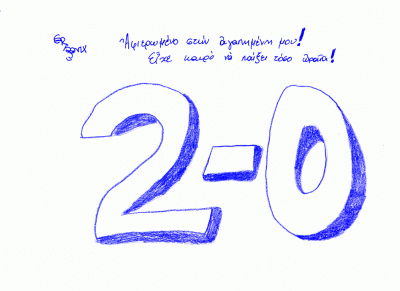 Αφιερωμένο στήν αγαπημένη μου!
Είχε καιρό νά παίξει τόσο ωραία!
2-0